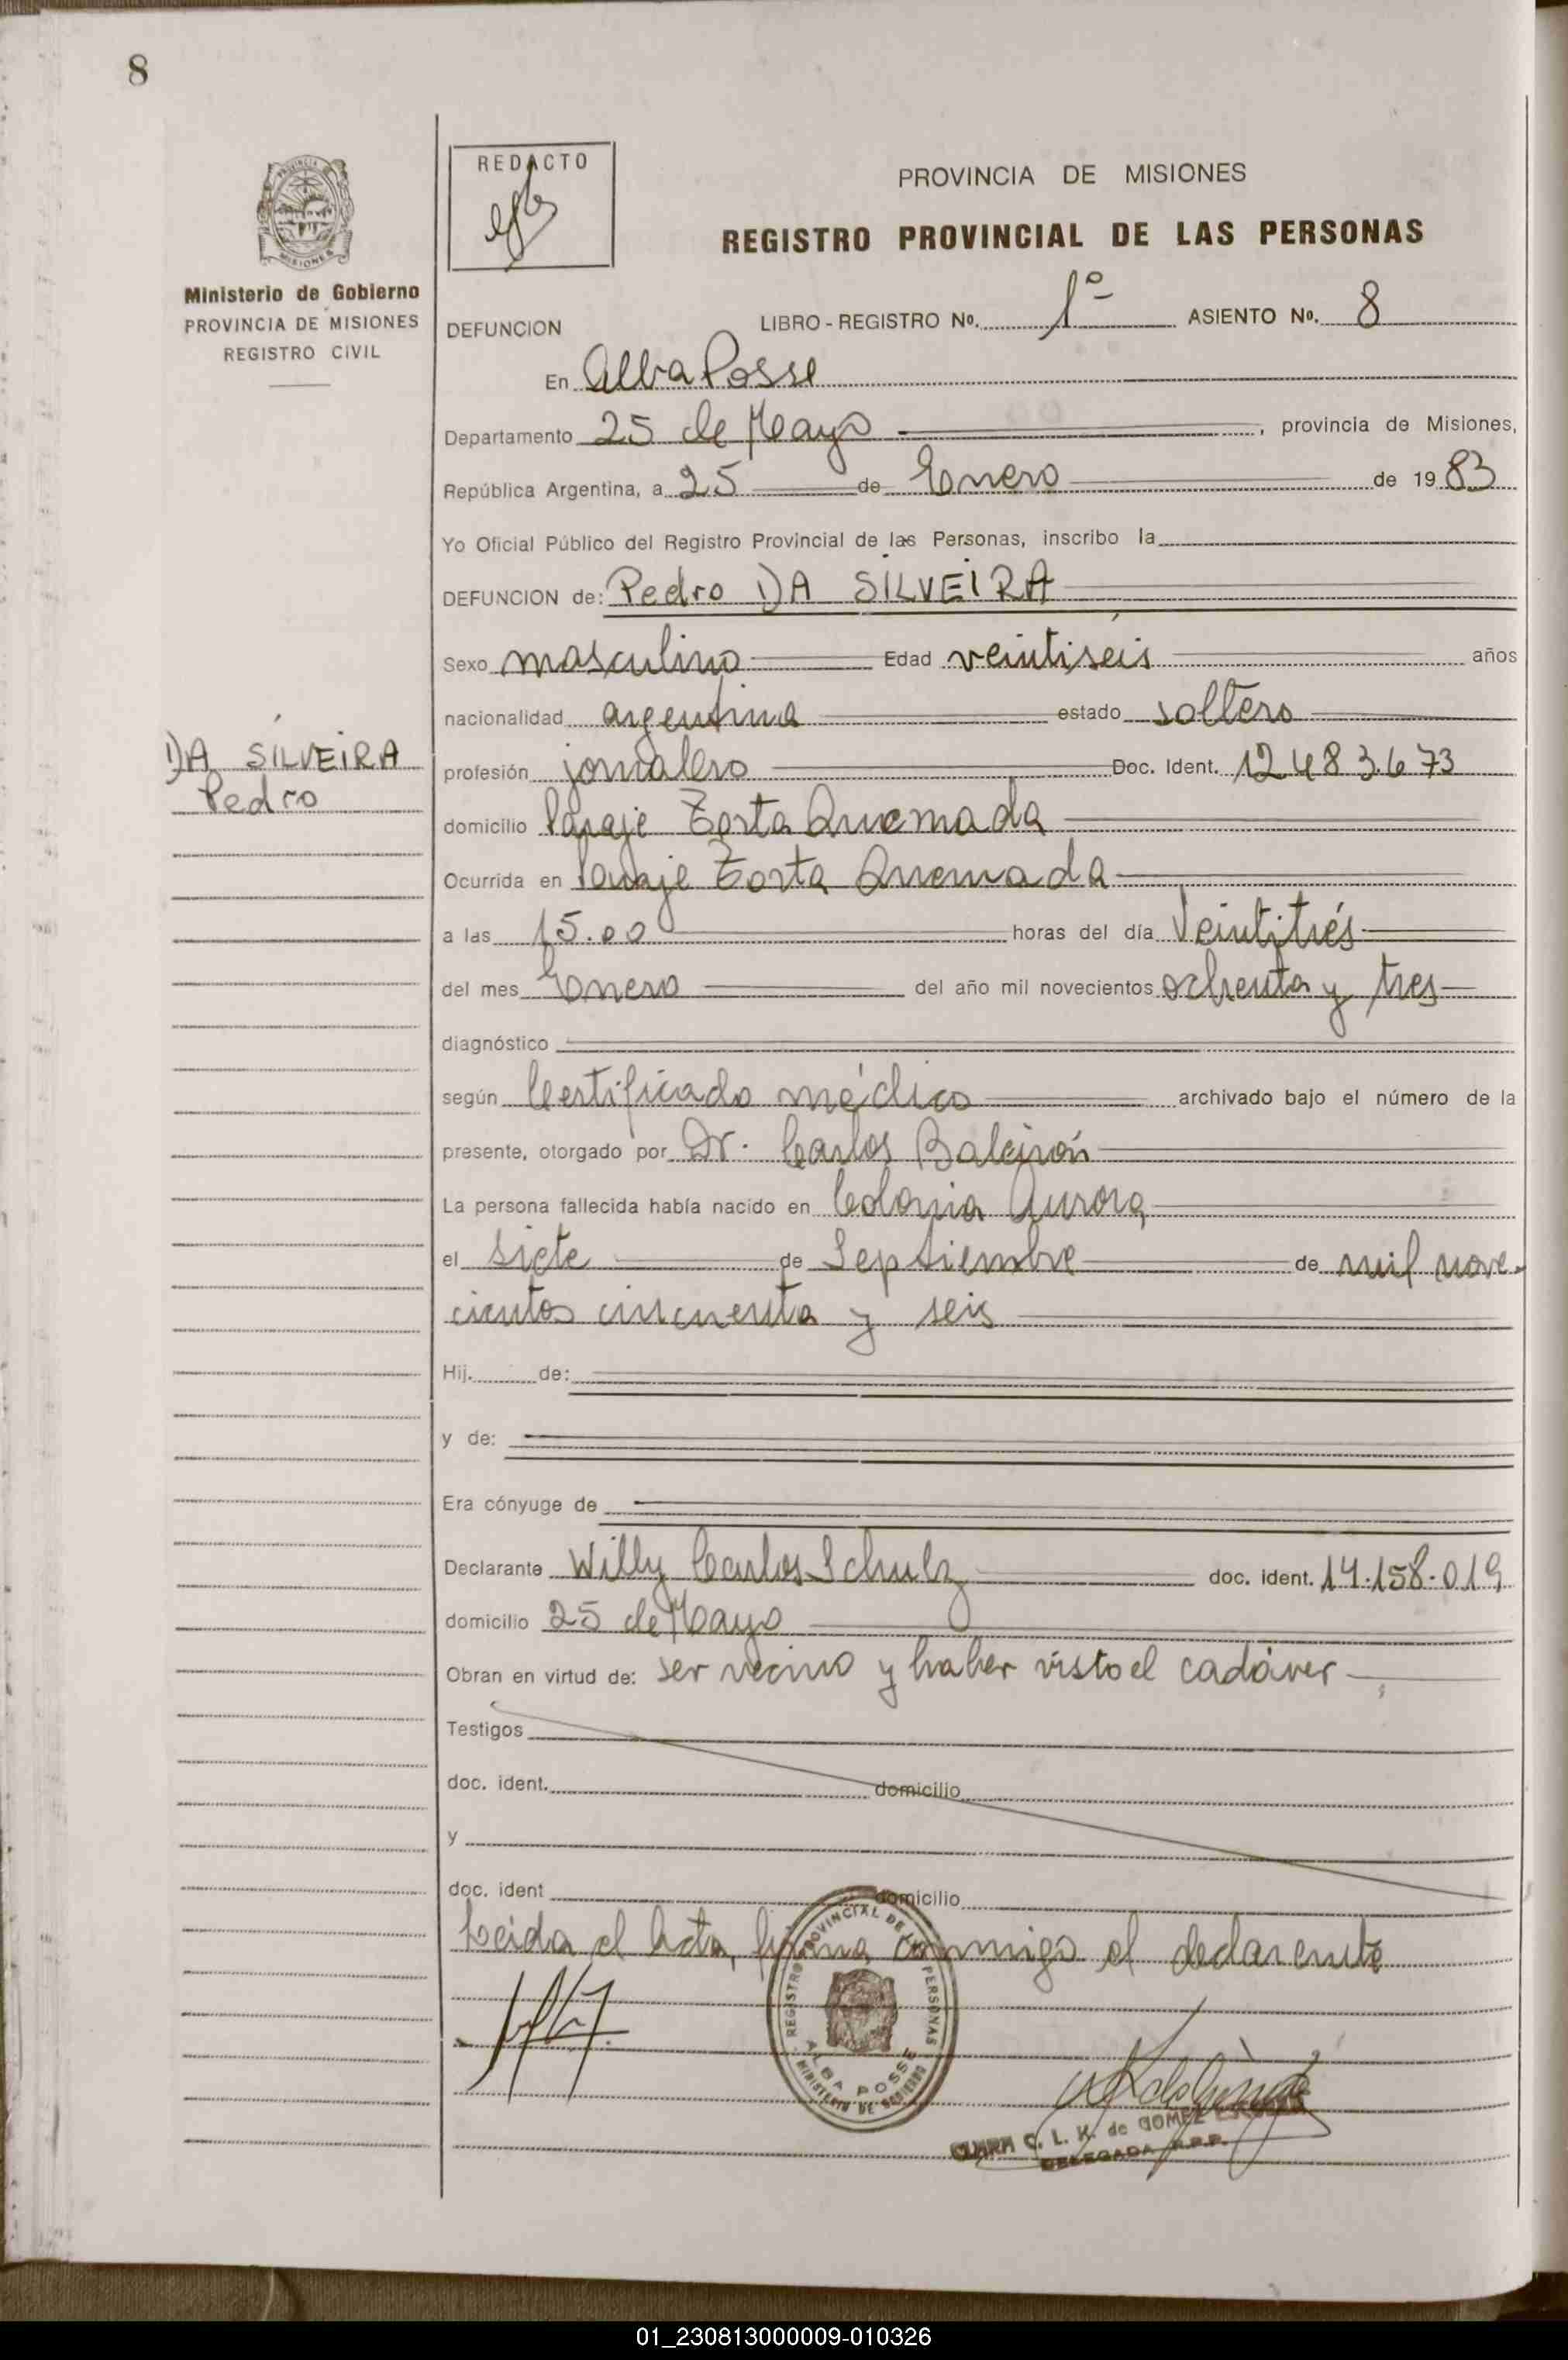 8
REDACTO
PROVINCIA DE MISIONES
REGISTRO PROVINCIAL DE LAS PERSONAS
Ministerio de Gobierno
PROVINCIA DE MISIONES
REGISTRO CIVIL
DEFUNCION LIBRO - REGISTRO Nº. 1º ASIENTO Nº. 8
En Alba Posse
Departamento 25 de Mayo, provincia de Misiones,
República Argentina, a 25 de Enero de 19 83
Yo Oficial Público del Registro Provincial de las Personas, inscribo la
DEFUNCION de: Pedro DA SILVEIRA
Sexo masculino Edad veintiseis años
nacionalidad argentina estado soltero
DA SILVEIRA
Pedro
profesión jornalero Doc. Ident. 12.483.673
domicilio Paraje Torta Quemada
Ocurrida en Paraje Torta Quemada
a las 15.00 horas del día Veintitrés
del mes Enero del año mil novecientos ochenta y tres
diagnóstico
según Certificado médico archivado bajo el número de la
presente, otorgado por Dr. Carlos
La persona fallecida había nacido en Colonia Aurora
el siete de Septiembre de mil nove-
cientos cincuenta y seis
Hij. de:
y de:
Era cónyuge de
Declarante Willy Carlos Schulz doc. ident. 14.158.019
domicilio 25 de Mayo
Obran en virtud de: ser vecino y haber visto el cadáver
Testigos
doc. ident. domicilio
y
doc. ident domicilio
Leida el Acta, firma conmigo el declarante
REGISTRO PROVINCIAL DE PERSONAS
ALBA POSSE
MINISTERIO DE GOBIERNO
CLARA C. L. K. de GOMEZ
DELEGADA R.P.P.
01_230813000009-010326